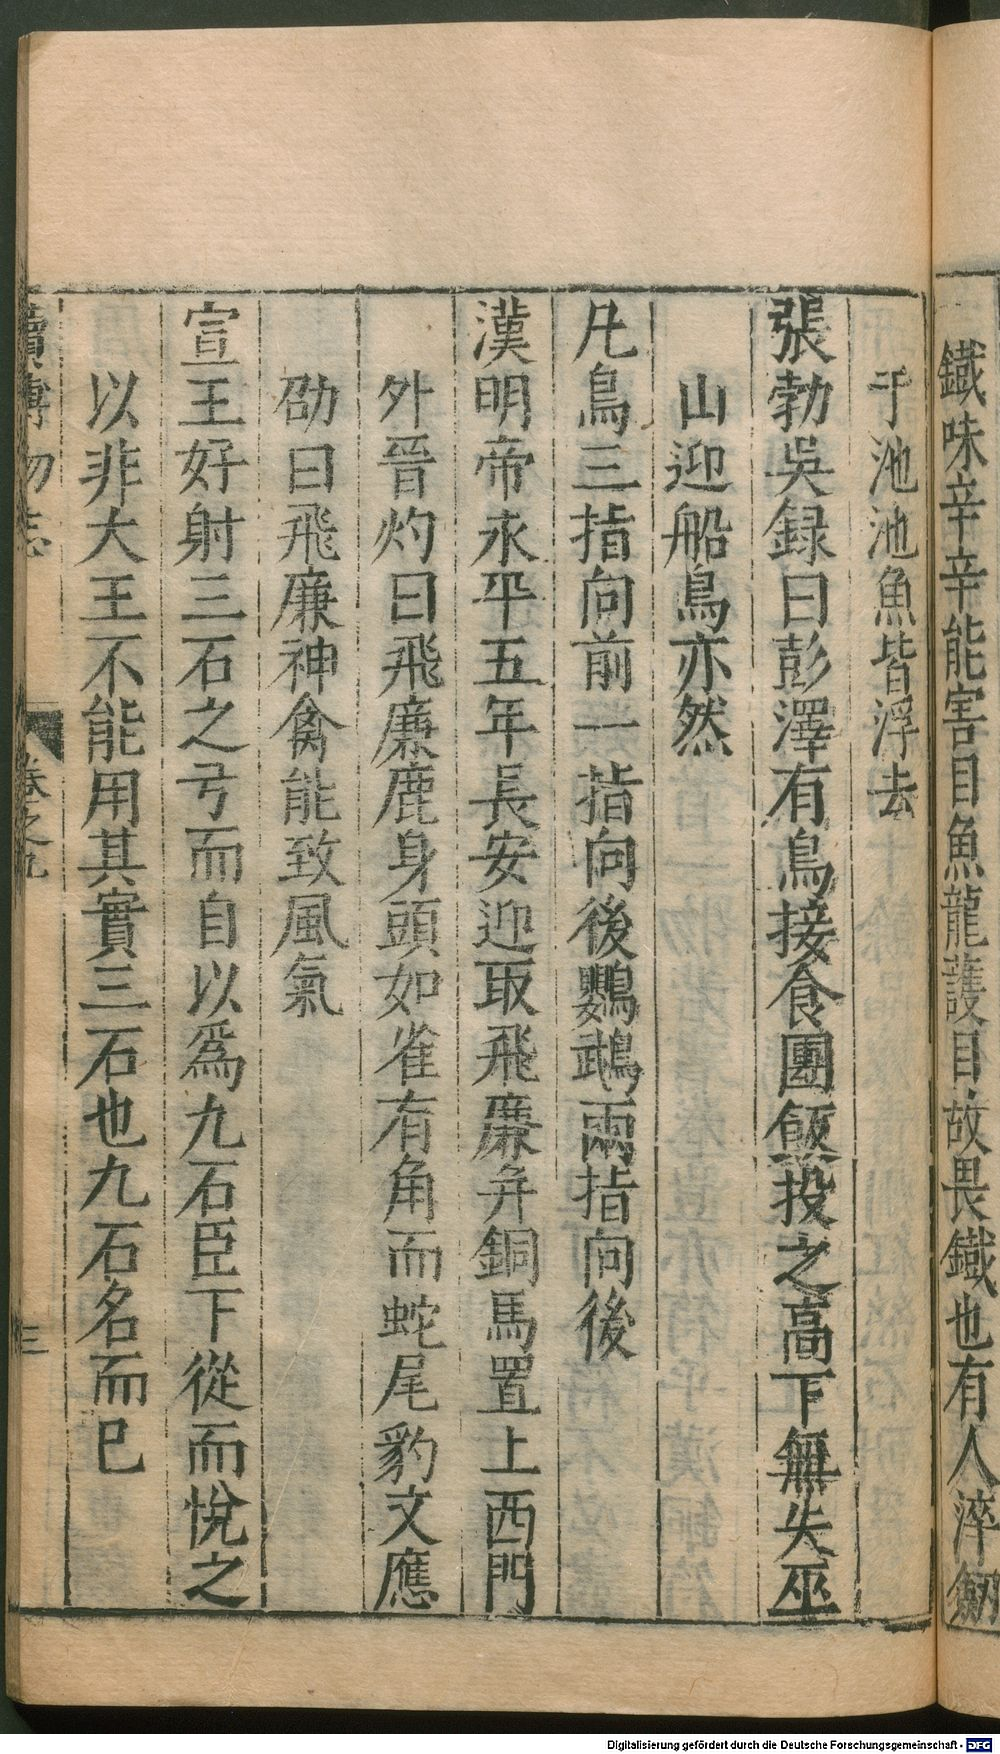 鐵味辛辛能害目魚龍護目故畏鐵也有人淬劒
于池池魚皆浮去
張勃吳録曰彭澤有鳥接食團飯投之高下無失巫
山迎船鳥亦然
凡鳥三指向前一指向後鸚鵡兩指向後
漢明帝永平五年長安迎取飛廉并銅馬置上西門
外晉灼曰飛廉鹿身頭如雀有角而蛇尾豹文應
劭曰飛廉神禽能致風氣
宣王好射三石之弓而自以為九石臣下從而悅之
以非大王不能用其實三石也九石名而已
續博物志
卷之九
三
Digitalisierung gefördert durch die Deutsche Forschungsgemeinschaft - DFG